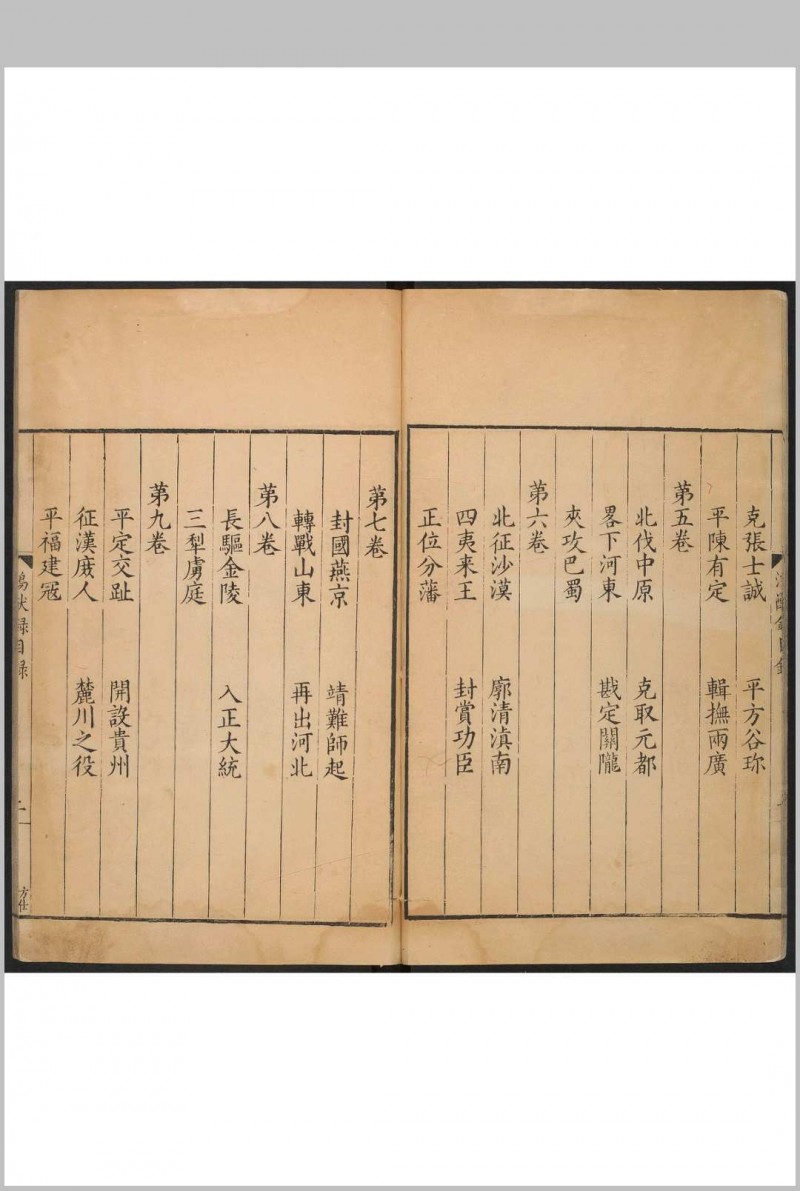 克張士誠 平方谷珎
平陳有定 輯撫兩廣
第五卷
北伐中原 克取元都
畧下河東 戡定關隴
夾攻巴蜀
第六卷
北征沙漠 廓清滇南
四夷来王 封賞功臣
正位分藩
第七卷
封國燕京 靖難師起
轉戰山東 再出河北
第八卷
長驅金陵 入正大統
三犁虜庭
第九卷
平定交趾 開設貴州
征漢庻人 麓川之役
平福建冦
鴻猷錄目録
二
方仕